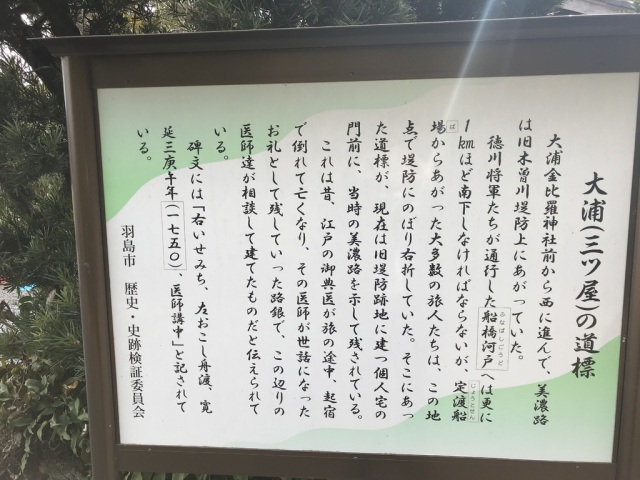 大浦(三ツ屋)の道標
大浦金比羅神社前から西に進んで、美濃路
は旧木曽川堤防上にあがっていた。
徳川将軍たちが通行した船橋河戸へは更に
ふなばしごうど
1kmほど南下しなければならないが、定渡船
じょうとせん
場からあがった大多数の旅人たちは、この地
ば
点で堤防にのぼり右折していた。そこにあっ
た道標が、現在は旧堤防跡地に建つ個人宅の
門前に、当時の美濃路を示して残されている。
これは昔、江戸の御典医が旅の途中、起宿
で倒れて亡くなり、その医師が世話になった
お礼として残していった路銀で、この辺りの
医師達が相談して建てたものだと伝えられて
いる。
碑文には「右いせみち、左おこし舟渡、寛
延三庚午年(一七五〇)、医師講中」と記されて
いる。
羽島市 歴史・史跡検証委員会